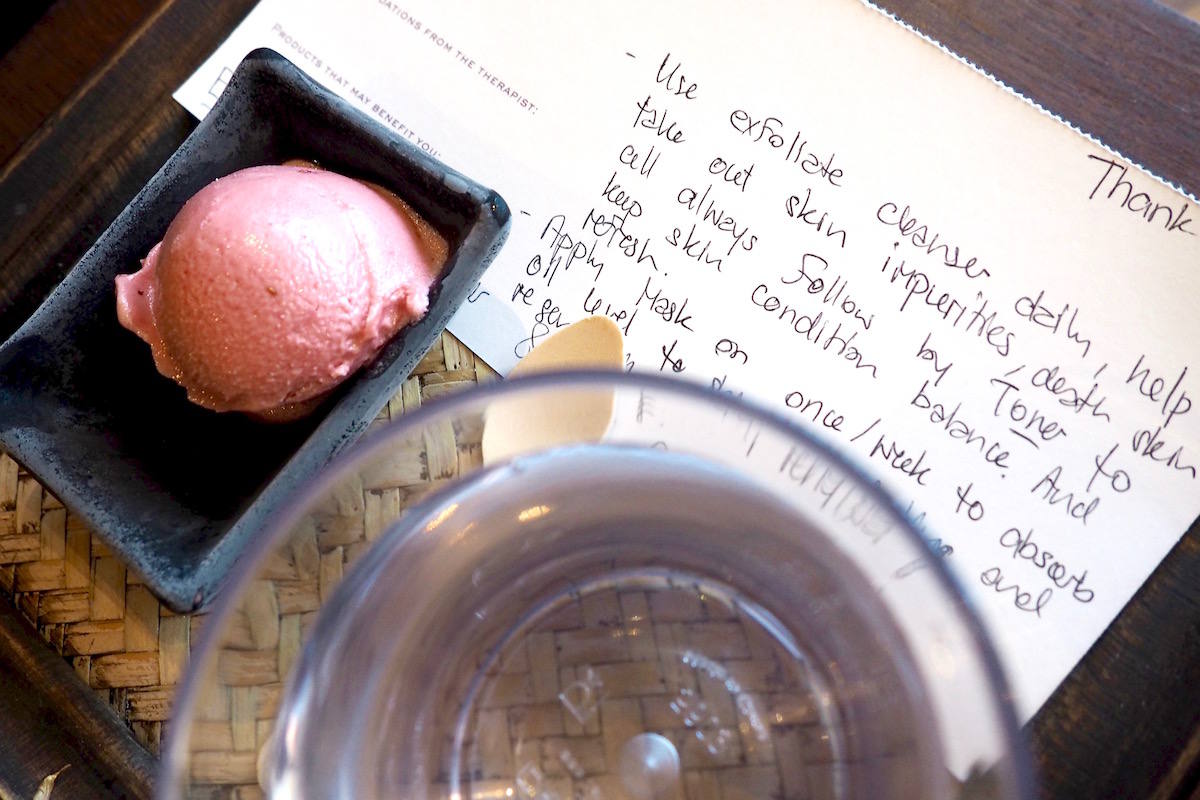 DATIONS FROM THE THERAPIST:
PRODUCTS THAT MAY BENEFIT YOU:
Thank
- Use exfoliate cleanser daily, help
take out skin impurities, death skin
cell always follow by Toner to
keep skin condition balance. And
refresh.
- Apply Mask on once/week to absorb
oil level and
to